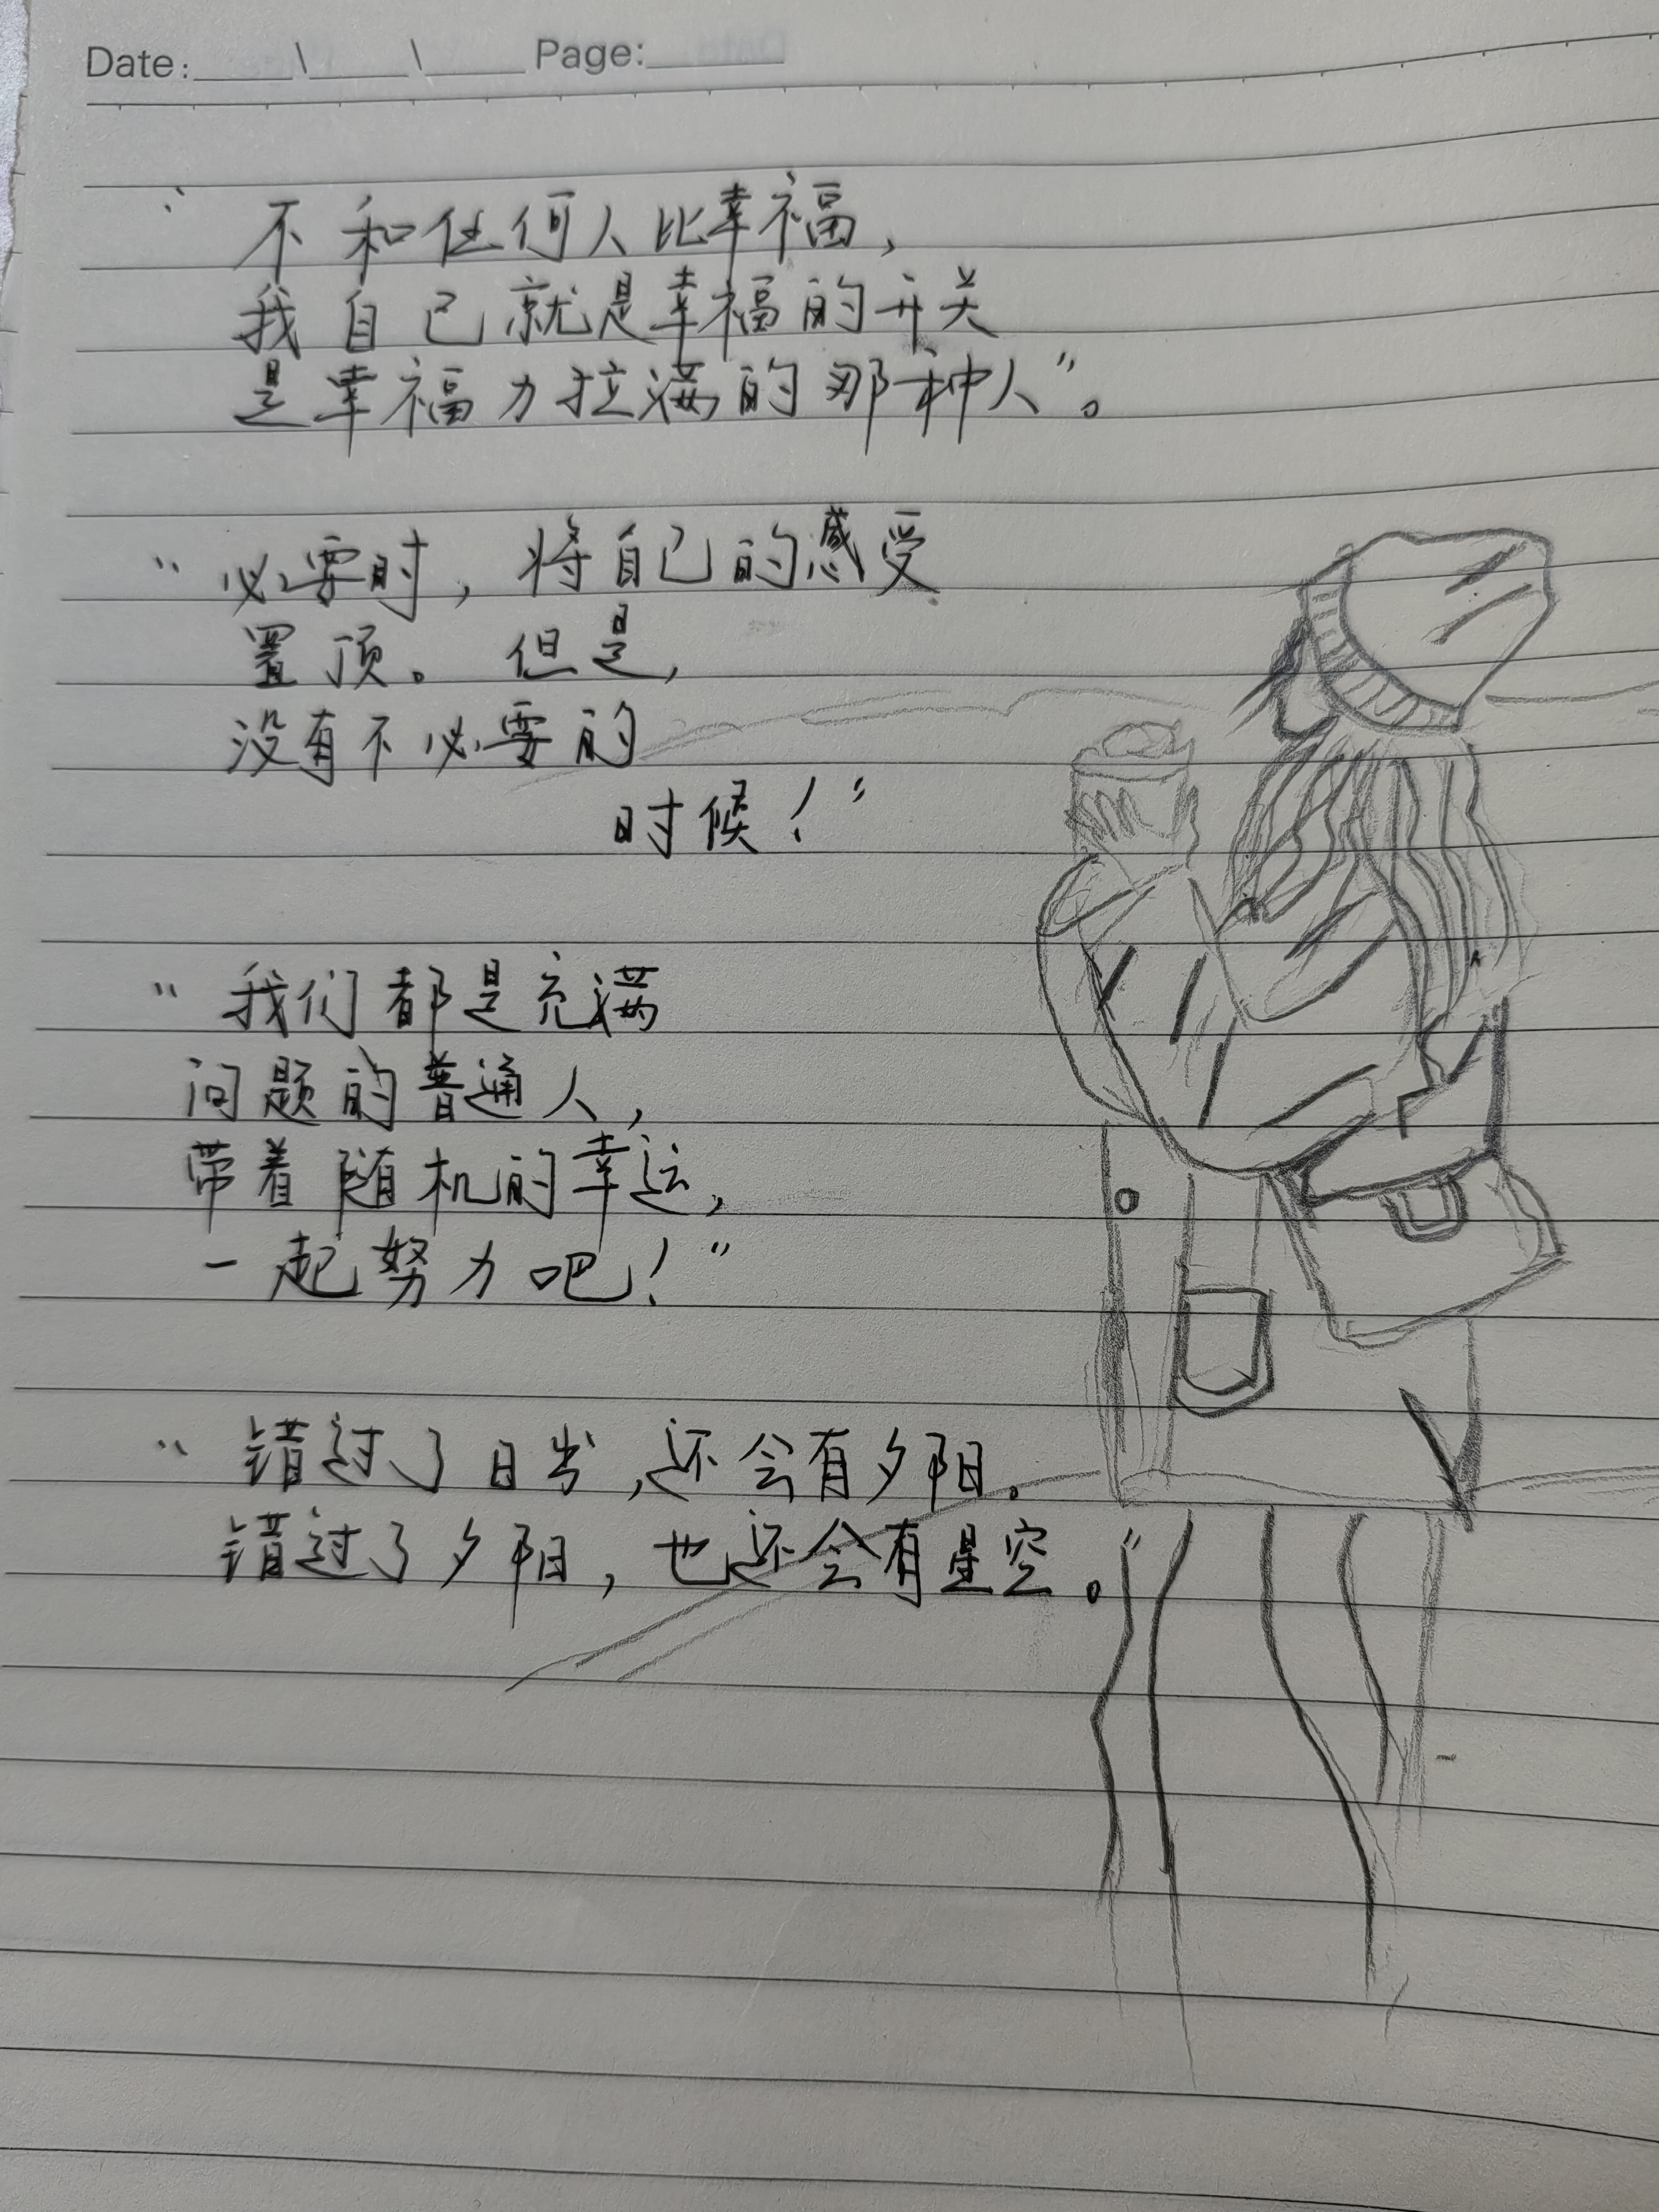 Date:____\____\____ Page:______
“不和任何人比幸福，
我自己就是幸福的开关
是幸福力拉满的那种人”。
“必要时，将自己的感受
置顶。但是，
没有不必要的
时候！”
“我们都是充满
问题的普通人，
带着随机的幸运，
一起努力吧！”
“错过了日出，还会有夕阳。
错过了夕阳，也还会有星空。”